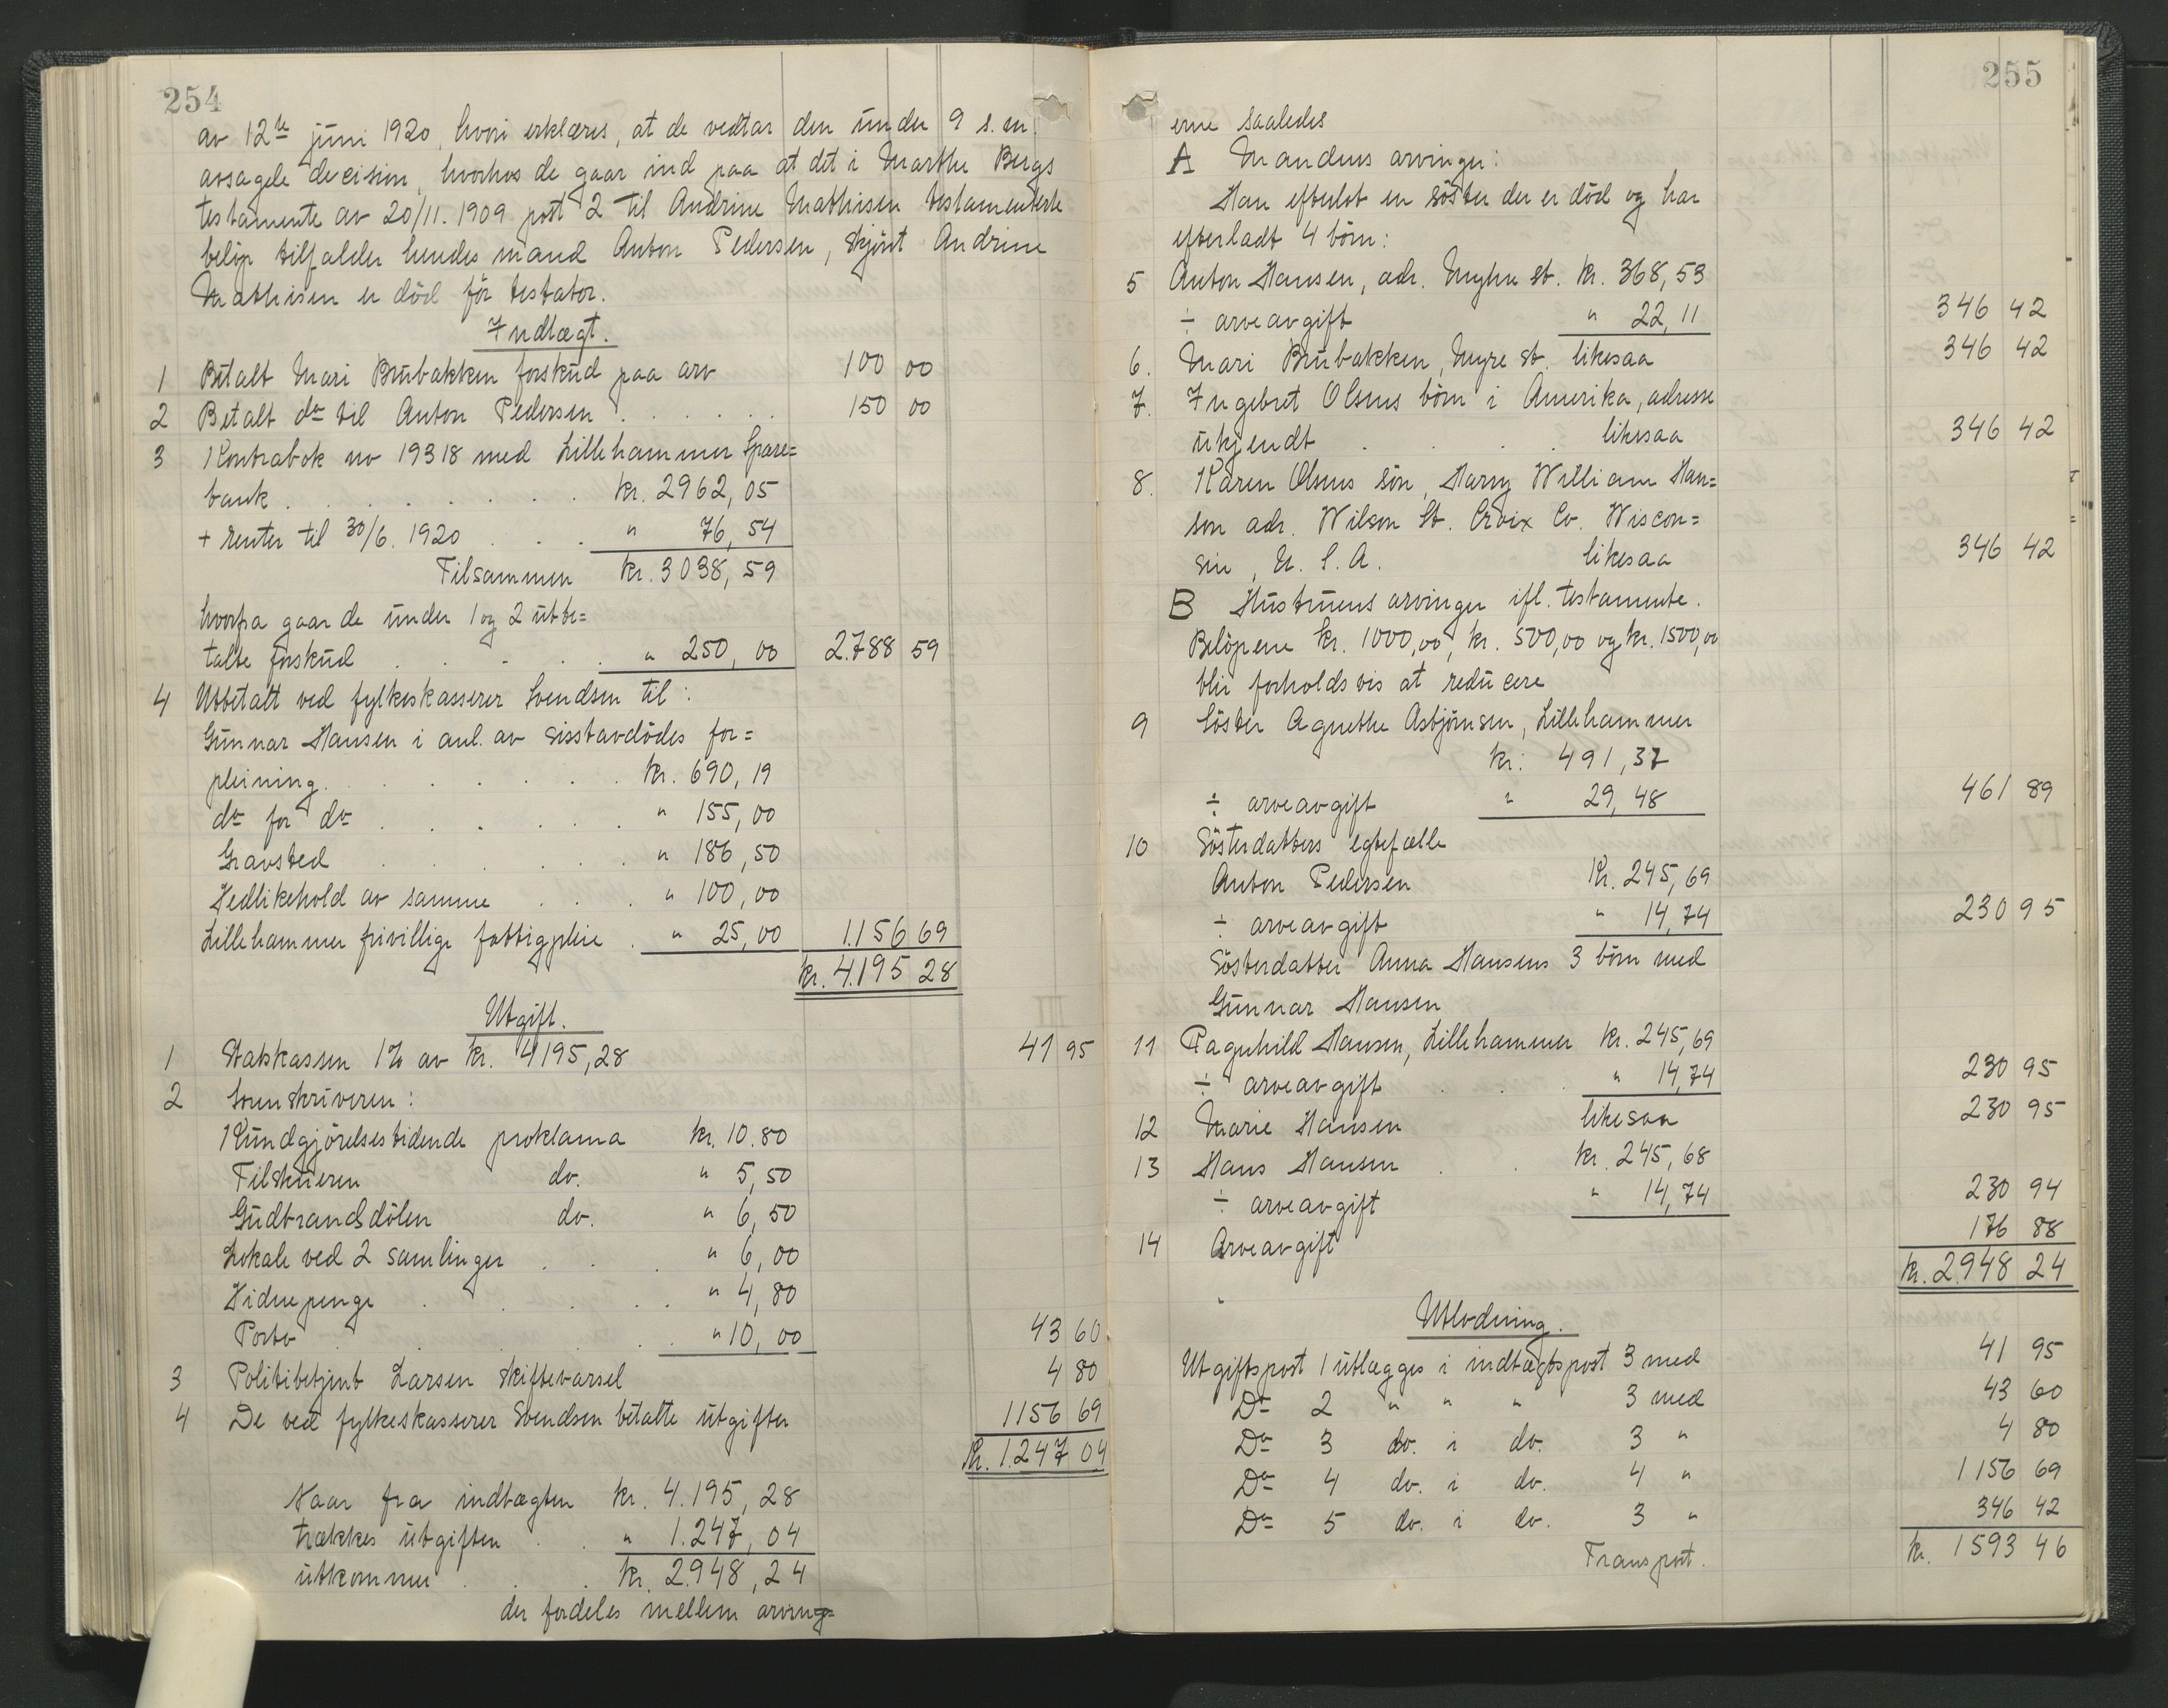 254
av 12te juni 1920, hvori erklæres, at de vedtar den under 9 s.m.
avsagede decision, hvorhos de gaar ind paa at det i Marthe Bergs
testamente av 20/11. 1909 post 2 til Andrine Mathisen testamenterte
beløp tilfalder hendes mand Anton Pedersen, skjönt Andrine
Mathisen er död för testator.
Indtægt.
1 Betalt Mari Brubakken forskud paa arv 100 00
2 Betalt do til Anton Pedersen . . . . . 150 00
3 Kontrabok no 19318 med Lillehammer Spare=
bank . . . . . . . kr. 2962,05
+ renter til 30/6. 1920 . . . " 76,54
Tilsammen kr. 3038,59
hvorfra gaar de under 1 og 2 utbe=
talte forskud . . . . . " 250,00 2.788 59
4 Utbetalt ved fylkeskasserer Svendsen til:
Gunnar Hansen i anl. av sisstavdödes for=
pleining . . . . . . . kr. 690,19
do for do . . . . . . " 155,00
Gravsted . . . . . . " 186,50
Vedlikehold av samme . . . " 100,00
Lillehammer frivillige fattigpleie . " 25,00 1.156 69
kr. 4.195 28
Utgift.
1 Statskassen 1% av kr. 4195,28 41 95
2 Sorenskriveren:
Kundgjörelsestidende proklama kr. 10.80
Tilskueren do. " 5,50
Gudbrandsdölen do. " 6,50
Lokale ved 2 samlinger . . . " 6,00
Vidnepenge . . . . . " 4,80
Porto . . . . . " 10,00 43 60
3 Politibetjent Larsen skiftevarsel 4 80
4 De ved fylkeskasserer Svendsen betalte utgifter 1156 69
Kr. 1.247 04
Naar fra indtægten kr. 4.195,28
trækkes utgiften . . " 1.247,04
utkommer . . . kr. 2.948,24
der fordeles mellem arving=
255
erne saaledes
A Mandens arvinger:
Han efterlot en söster der er död og har
efterladt 4 börn:
5 Anton Hansen, adr. Myhre st. kr. 368,53
÷ arveavgift " 22,11 346 42
6. Mari Brubakken, Myre st. likesaa 346 42
7. Ingebret Olsens börn i Amerika, adresse
ukjendt . . . likesaa 346 42
8. Karen Olsens sön, Harry William Han=
son adr. Wilson St. Croix Co. Wiscon=
sin, U. S. A. likesaa 346 42
B Hustruens arvinger ifl. testamente.
Belöpene kr. 1000,00, kr. 500,00 og kr. 1500,00
blir forholdsvis at reducere
9 Söster Agnethe Asbjörnsen, Lillehammer
kr. 491,37
÷ arveavgift " 29,48 461 89
10 Sösterdatters egtefælle
Anton Pedersen Kr. 245,69
÷ arveavgift " 14,74 230 95
Sösterdatter Anna Hansens 3 börn med
Gunnar Hansen
11 Ragnhild Hansen, Lillehammer kr. 245,69
÷ arveavgift . . " 14,74 230 95
12 Marie Hansen likesaa 230 95
13 Hans Hansen . . kr. 245,68
÷ arveavgift " 14,74 230 94
14 Arveavgift 176 88
kr. 2.948 24
Utlodning.
Utgiftspost 1 utlægges i indtægtspost 3 med 41 95
Do 2 " " " 3 med 43 60
Do 3 do. i do. 3 " 4 80
Do 4 do. i do. 4 " 1156 69
Do 5 do. i do. 3 " 346 42
Transport. kr. 1593 46